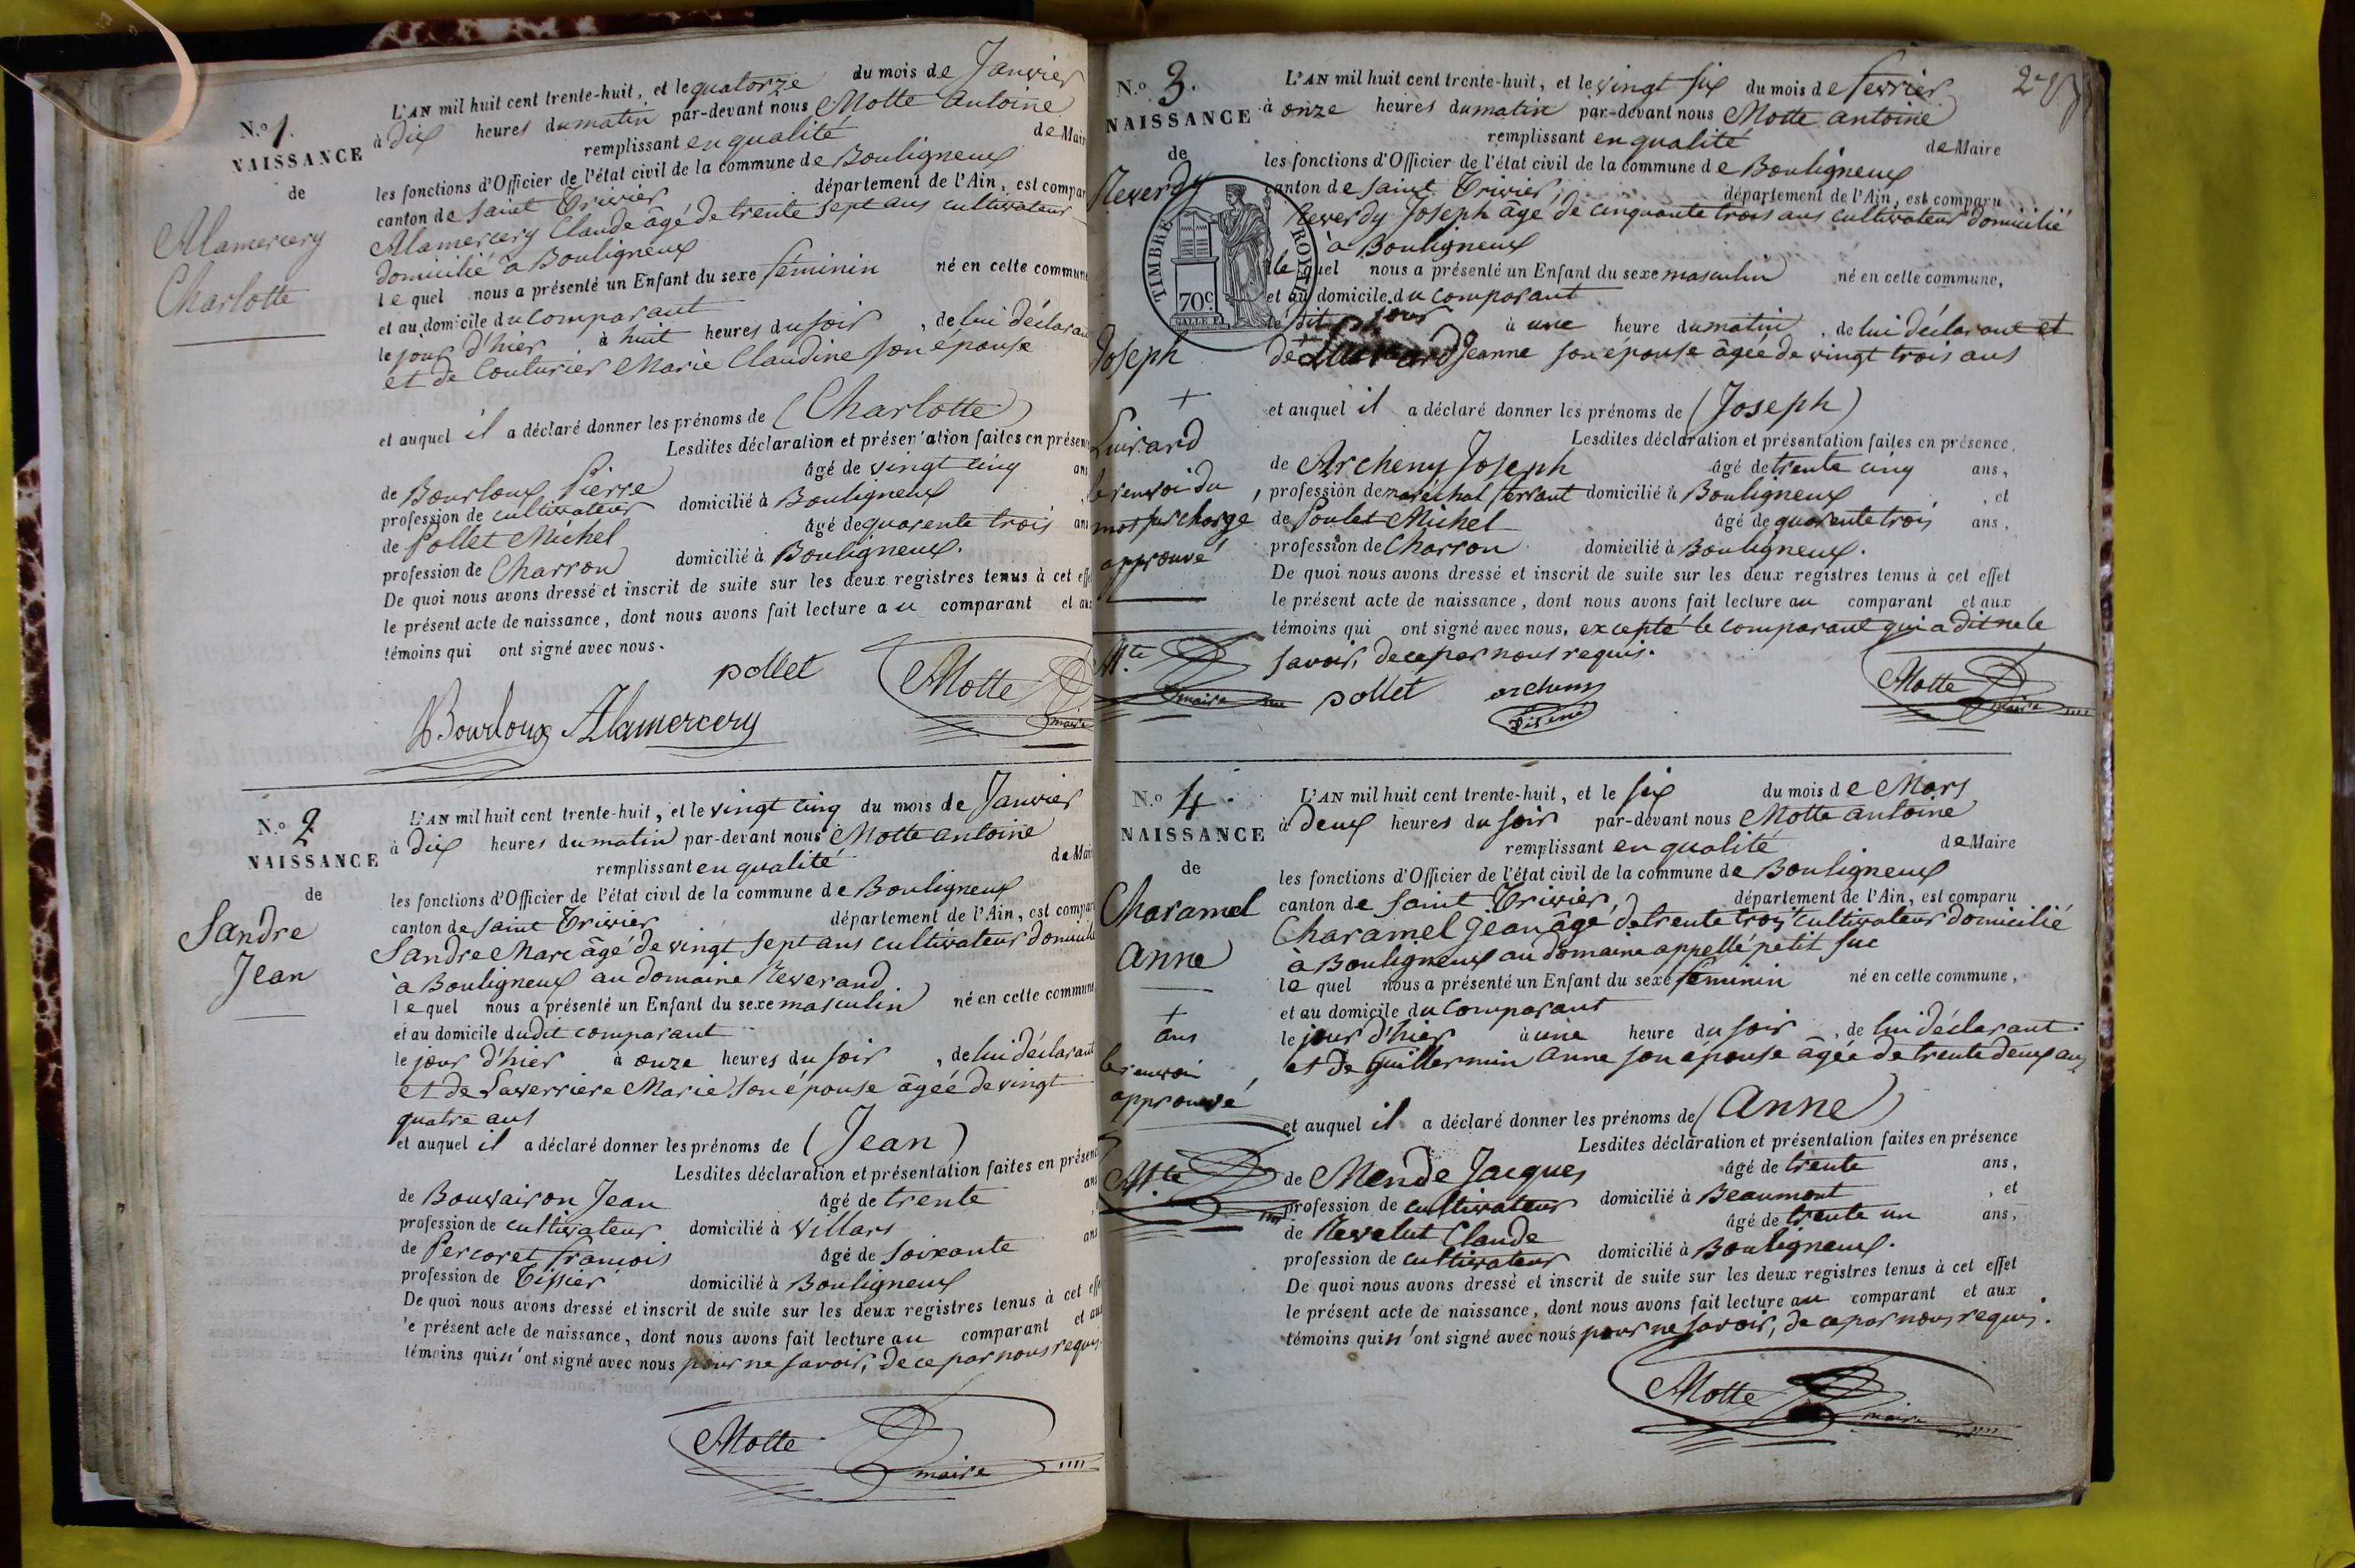 N.º 1.
NAISSANCE
de
Alamercery
Charlotte
L'AN mil huit cent trente-huit, et le quatorze du mois de Janvier
à dix heures du matin par-devant nous Motte antoine
remplissant en qualité de Mair
les fonctions d'Officier de l'état civil de la commune de Bouligneux
canton de saint Trivier département de l'Ain, est compar
Alamercery Claude âgé de trente sept ans cultivateur
domicilié à Bouligneux
lequel nous a présenté un Enfant du sexe féminin né en cette commune
et au domicile du comparant
le jour d'hier à huit heures du soir, de lui déclarant
et de Couturier Marie Claudine son épouse
et auquel il a déclaré donner les prénoms de (Charlotte)
Lesdites déclaration et présentation faites en présence
de Bourloux Pierre âgé de vingt cinq ans
profession de cultivateur domicilié à Bouligneux
de Pollet Michel âgé de quarente trois ans
profession de Charron domicilié à Bouligneux.
De quoi nous avons dressé et inscrit de suite sur les deux registres tenus à cet effe
le présent acte de naissance, dont nous avons fait lecture au comparant et aux
témoins qui ont signé avec nous.
pollet Motte maire
Bourloux Alamercery
N.º 2
NAISSANCE
de
Sandre
Jean
L'AN mil huit cent trente-huit, et le vingt cinq du mois de Janvier
à dix heures du matin par-devant nous Motte antoine
remplissant en qualité de Mair
les fonctions d'Officier de l'état civil de la commune de Bouligneux
canton de saint Trivier département de l'Ain, est compar
Sandre Marc âgé de vingt sept ans cultivateur domicilié
à Bouligneux au domaine Reverand
lequel nous a présenté un Enfant du sexe masculin né en cette commune
et au domicile dudit comparant
le jour d'hier à onze heures du soir, de lui déclarant
et de Laverriere Marie son épouse âgée de vingt
quatre ans
et auquel il a déclaré donner les prénoms de (Jean)
Lesdites déclaration et présentation faites en présence
de Bouvairon Jean âgé de trente ans
profession de cultivateur domicilié à Villars
de Percoret francois âgé de soixante ans
profession de Tissier domicilié à Bouligneux
De quoi nous avons dressé et inscrit de suite sur les deux registres tenus à cet effe
le présent acte de naissance, dont nous avons fait lecture au comparant et aux
témoins qui n'ont signé avec nous pour ne savoir, de ce par nous requis.
Motte maire
N.º 3.
NAISSANCE
de
Reverdy
Joseph
+
Luisard
le renvoi du
mot surchargé
approuvé
Mtte
maire
TIMBRE ROYAL
70c
L'AN mil huit cent trente-huit, et le vingt six du mois de fevrier
à onze heures du matin par-devant nous Motte antoine
remplissant en qualité de Maire
les fonctions d'Officier de l'état civil de la commune de Bouligneux
canton de saint Trivier, département de l'Ain, est comparu
Reverdy Joseph âgé de cinquante trois ans cultivateur domicilié
à Bouligneux
lequel nous a présenté un Enfant du sexe masculin né en cette commune,
et au domicile du comparant
le dit jour à une heure du matin, de lui déclarant et
de Jeanne son épouse âgée de vingt trois ans
et auquel il a déclaré donner les prénoms de (Joseph)
Lesdites déclaration et présentation faites en présence
de Archeny Joseph âgé de trente cinq ans,
profession de maréchal ferrant domicilié à Bouligneux, et
de Poulet Michel âgé de quarente trois ans,
profession de Charron domicilié à Bouligneux.
De quoi nous avons dressé et inscrit de suite sur les deux registres tenus à cet effet
le présent acte de naissance, dont nous avons fait lecture au comparant et aux
témoins qui ont signé avec nous, excepté le comparant qui a dit ne le
savoir, de ce par nous requis.
pollet archeny Motte maire
N.º 4.
NAISSANCE
de
Charamel
Anne
+
ans
le renvoi
approuvé
Mtte
L'AN mil huit cent trente-huit, et le six du mois de Mars
à deux heures du soir par-devant nous Motte antoine
remplissant en qualité de Maire
les fonctions d'Officier de l'état civil de la commune de Bouligneux
canton de saint Trivier, département de l'Ain, est comparu
Charamel Jean âgé de trente trois + cultivateur domicilié
à Bouligneux au domaine appellé petit suc
lequel nous a présenté un Enfant du sexe féminin né en cette commune,
et au domicile du comparant
le jour d'hier à une heure du soir, de lui déclarant
et de Guillermin Anne son epouse âgée de trente deux ans
et auquel il a déclaré donner les prénoms de (Anne)
Lesdites déclaration et présentation faites en présence
de Mende Jacques âgé de trente ans,
profession de cultivateur domicilié à Beaumont, et
de Revelut Claude âgé de trente un ans,
profession de cultivateur domicilié à Bouligneux.
De quoi nous avons dressé et inscrit de suite sur les deux registres tenus à cet effet
le présent acte de naissance, dont nous avons fait lecture au comparant et aux
témoins qui n'ont signé avec nous pour ne savoir, de ce par nous requis.
Motte maire